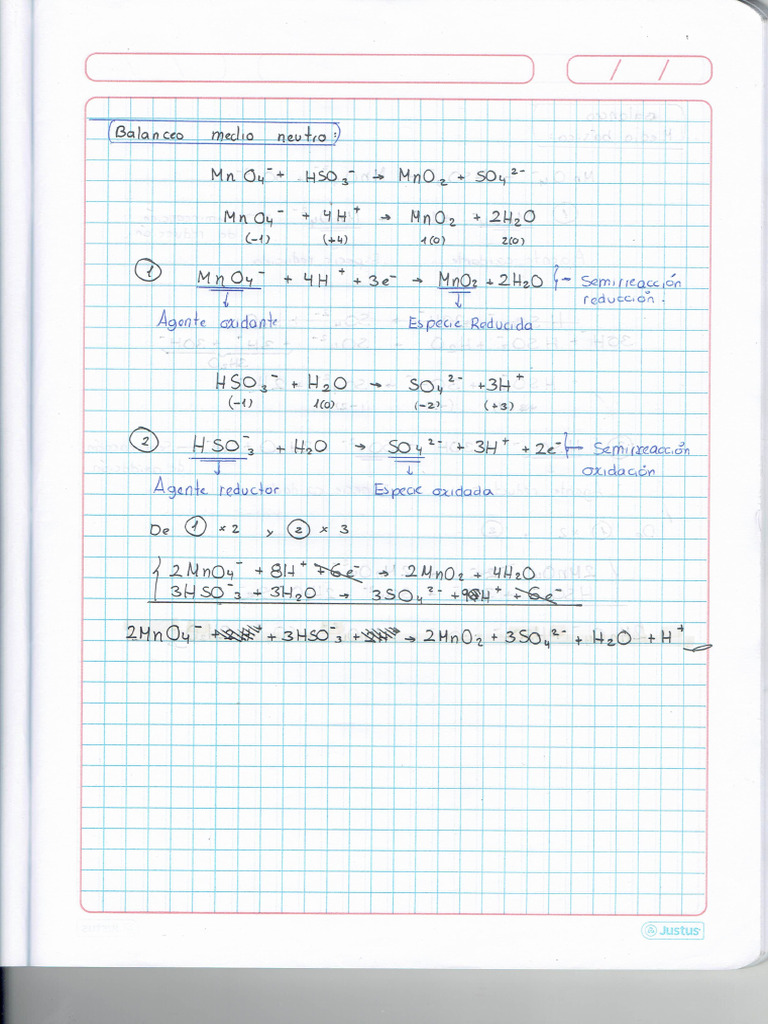 / /
Balanceo medio neutro:
MnO₄⁻ + HSO₃⁻ → MnO₂ + SO₄²⁻
MnO₄⁻ + 4H⁺ → MnO₂ + 2H₂O
(-1) (+4) 1(0) 2(0)
① MnO₄⁻ + 4H⁺ + 3e⁻ → MnO₂ + 2H₂O } Semirreacción
reducción.
Agente oxidante Especie Reducida
HSO₃⁻ + H₂O → SO₄²⁻ + 3H⁺
(-1) 1(0) (-2) (+3)
② HSO₃⁻ + H₂O → SO₄²⁻ + 3H⁺ + 2e⁻ } Semirreacción
oxidación
Agente reductor Especie oxidada
De ① × 2 y ② × 3
2MnO₄⁻ + 8H⁺ + 6e⁻ → 2MnO₂ + 4H₂O
3HSO₃⁻ + 3H₂O → 3SO₄²⁻ + 9H⁺ + 6e⁻
2MnO₄⁻ + 3HSO₃⁻ → 2MnO₂ + 3SO₄²⁻ + H₂O + H⁺
Justus